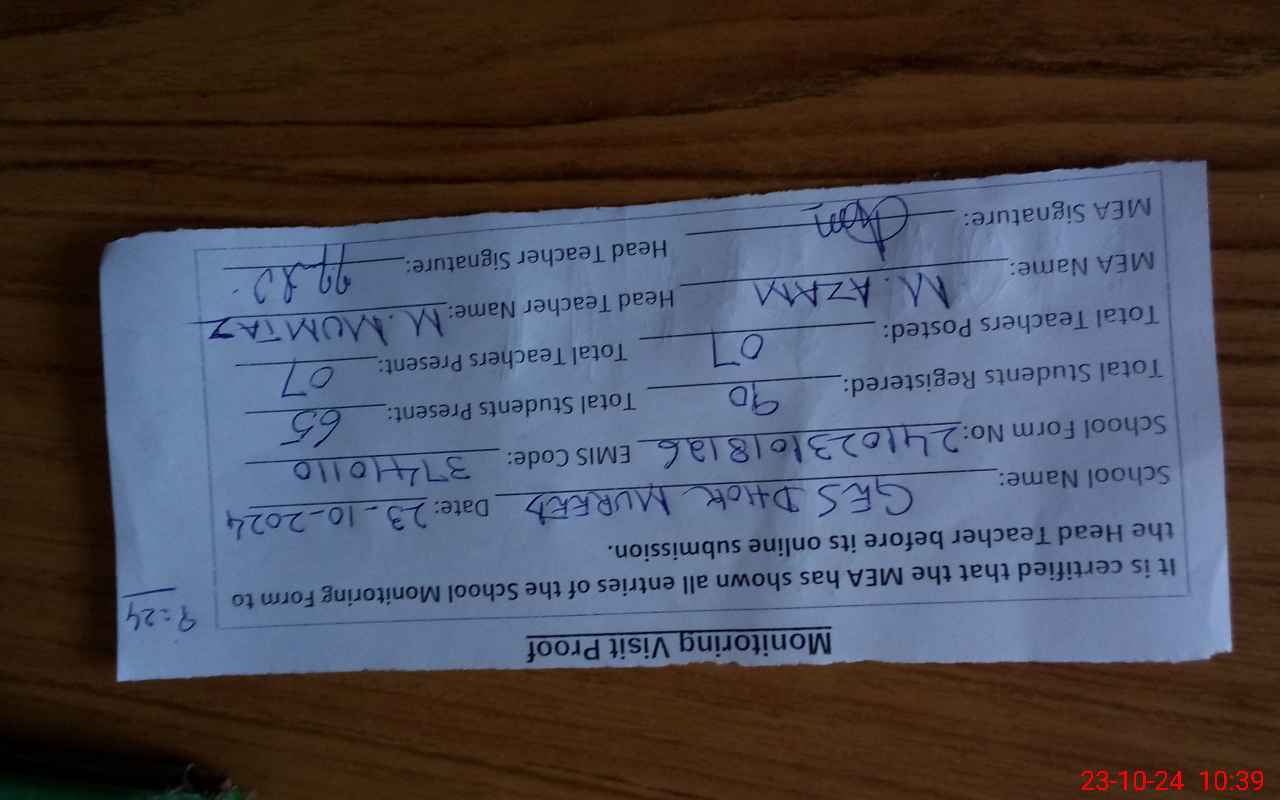 Monitoring Visit Proof
9:24
It is certified that the MEA has shown all entries of the School Monitoring Form to
the Head Teacher before its online submission.
School Name: GES DHOK MUREED Date: 23-10-2024
School Form No: 2410231018126 EMIS Code: 37410110
Total Students Registered: 90 Total Students Present: 65
Total Teachers Posted: 07 Total Teachers Present: 07
MEA Name: M. AZAM Head Teacher Name: M. MUMTAZ
MEA Signature: Head Teacher Signature:
23-10-24 10:39